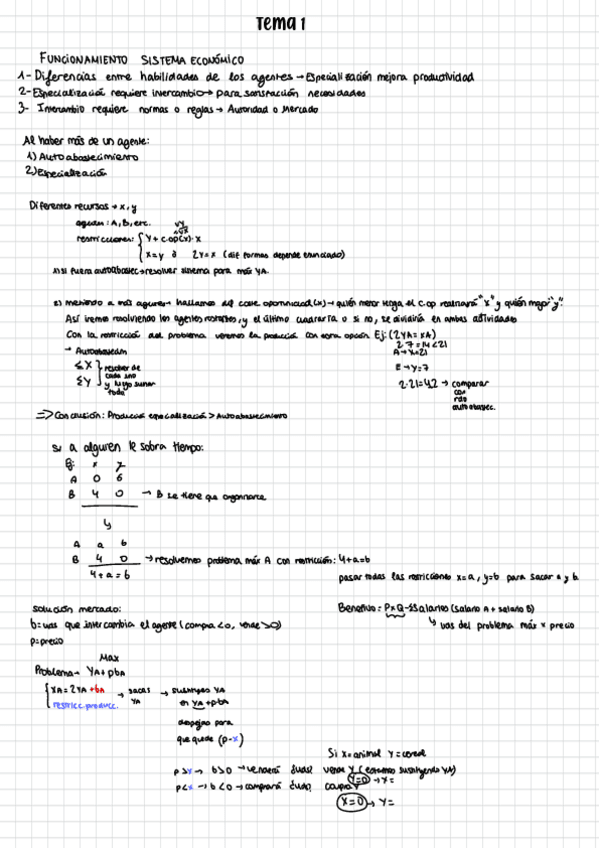 Tema 1
FUNCIONAMIENTO SISTEMA ECONÓMICO
1- Diferencias entre habilidades de los agentes → Especialización mejora productividad
2- Especialización requiere intercambio → para satisfacción necesidades
3- Intercambio requiere normas o reglas → Autoridad o Mercado
Al haber más de un agente:
1) Autoabastecimiento
2) Especialización
Diferentes recursos → x, y
A, B, etc.
restricciones: { Y + c.op(x)· x
X=y ó 2Y=x (dif formas depende enunciado)
1) si fuera autoabastec → resolver sistema para máx YA.
2) hallamos coste oportunidad (x) → quién menor tenga el c.op realizará "x" y quién mayor "y".
Así iremos resolviendo los agentes restantes, y el último cuadraría o si no, se dividiría en ambas actividades
Con la restricción del problema veremos la producción con esta opción Ej: (2YA = XA)
2·7=14<21
→ Autoabastecim
A → X=21
ΣX } resolver de
cada uno
ΣY y luego sumar
todo
E → Y=7
2·21=42 → comparar
con
autoabastec.
=> Conclusión: Producción especialización > Autoabastecimiento
Si a alguien le sobra tiempo:
Ej: x y
A 0 6
B 4 0 → B se tiene que
A a b
B 4 0 → resolvemos problema máx A con restricción: 4+a=b
4+a=b
pasar todas las restricciones x=a, y=b para sacar a y b.
Solución mercado:
Beneficio: P×Q - Σsalarios (salario A + salario B)
b= uds que intercambia el agente (compra <0, vende >0)
uds del problema máx × precio
p= precio
Max
Problema → YA + pbA
{ XA = 2YA + bA → sacas YA → sustituyes YA
restricc. producc.
en YA + pbA
despejas para
que quede (p-x)
Si X=animal Y=cereal
p>x → b>0 → venderá
vende Y (estamos sustituyendo YA)
Y=0 → X=
p<x → b<0 → comprará
compra Y
X=0 → Y=